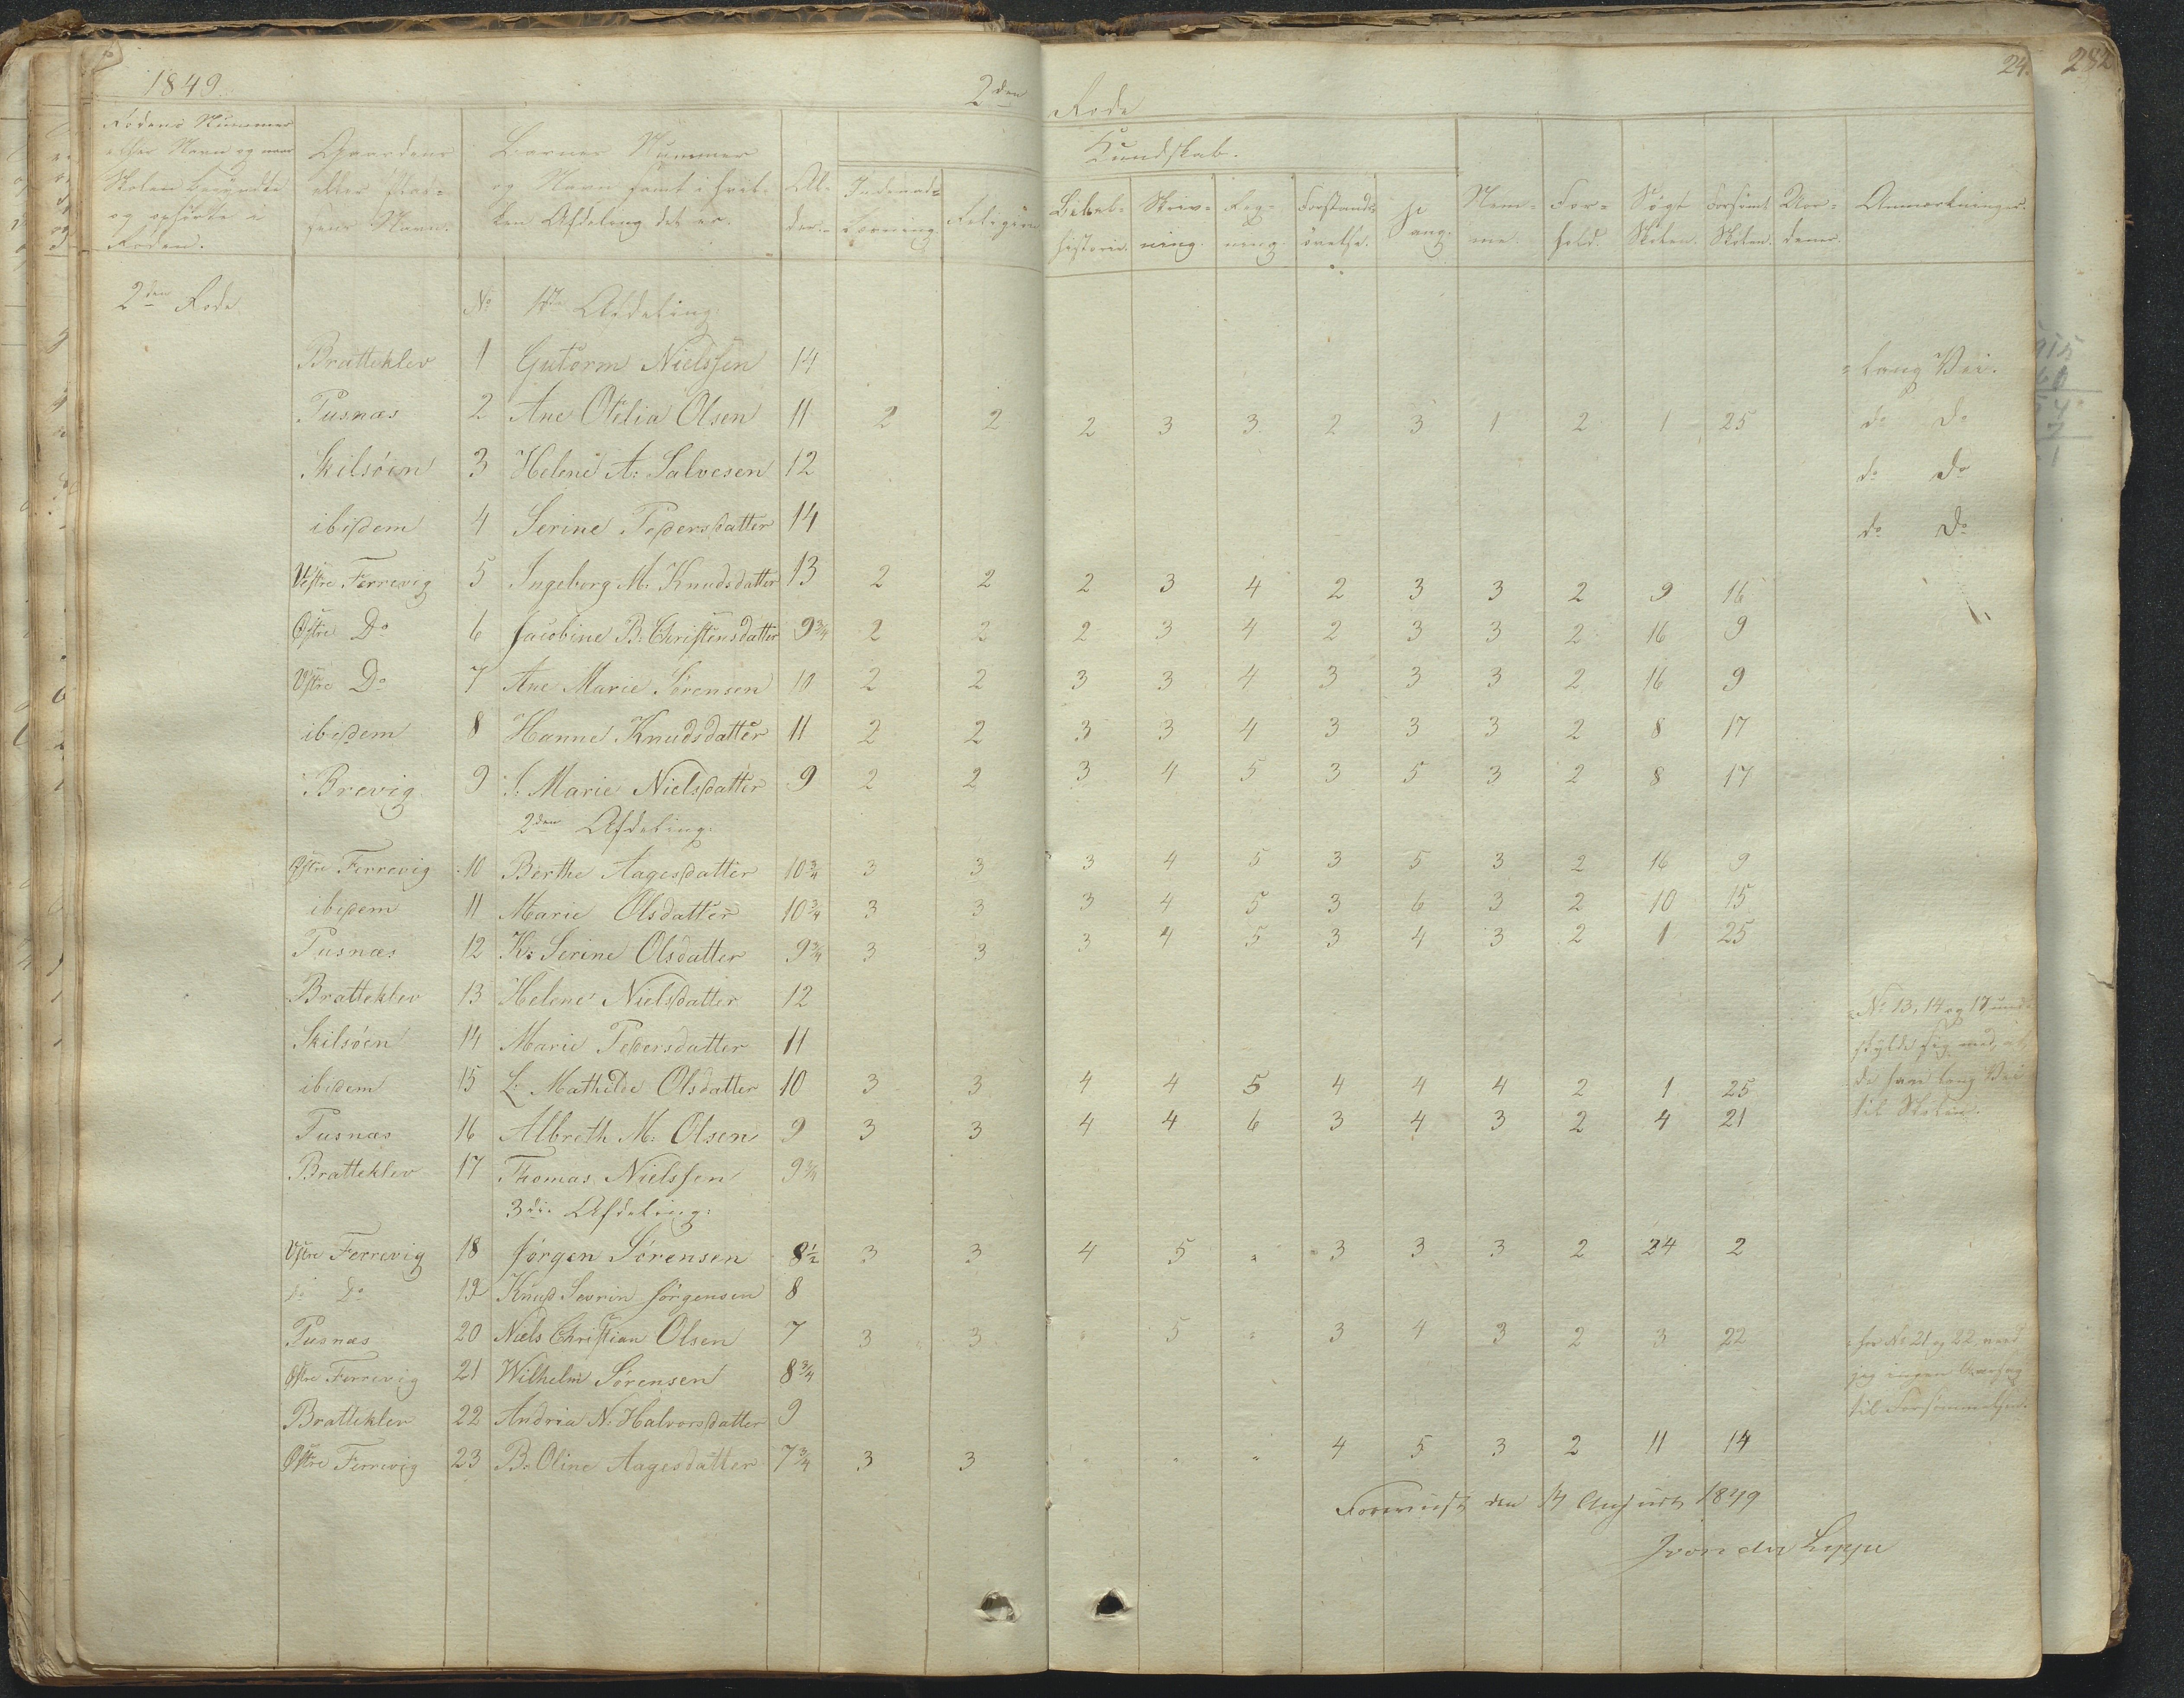 1849. 2den Rode 24. 282
Rodens Nummer eller Navn og naar Skolen begyndte og ophørte i Roden.
Gaardens eller Plad=sens Navn.
Barnes Nummer og Navn samt i hvil=ken Afdeling det er.
Al=der.
Kundskab.
Indenad=læsning
Religion
Bibel=historie.
Skriv=ning.
Reg=ning.
Forstands=øvelse.
Sang.
Nem=me.
For=hold.
Søgt Skolen.
Forsømt Skolen.
Anmærkninger.
2den Rode No 1ste Afdeling:
Bratteklev 1 Gutorm Nielssen 14 = lang Vei.
Pusnæs 2 Ane Otilia Olsen 11 2 2 2 3 3 2 3 1 2 1 25 do Do
Skilsöen 3 Helene A: Salvesen 12 do Do
ibidem 4 Serine Pedersdatter 14 do Do
Vestre Ferrevig 5 Ingeborg M: Knudsdatter 13 2 2 2 3 4 2 3 3 2 9 16
Østre Do 6 Jacobine B: Christensdatter 9 3/4 2 2 2 3 4 2 3 3 2 16 9
Vstre Do 7 Ane Marie Sörensen 10 2 2 3 3 4 3 3 3 2 16 9
ibidem 8 Hanne Knudsdatter 11 2 2 3 3 4 3 3 3 2 8 17
Brevig 9 S: Marie Nielsdatter 9 2 2 3 4 5 3 5 3 2 8 17
2den Afdeling:
Østre Ferrevig 10 Berthe Aagesdatter 10 3/4 3 3 3 4 5 3 5 3 2 16 9
ibidem 11 Marie Olsdatter 10 3/4 3 3 3 4 5 3 6 3 2 10 15
Pusnæs 12 K: Serine Olsdatter 9 3/4 3 3 3 4 5 3 4 3 2 1 25
Bratteklev 13 Helene Nielsdatter 12 No 13, 14 og 17 und=
Skilsöen 14 Marie Pedersdatter 11 skylde sig med, at
ibidem 15 L: Mathilde Olsdatter 10 3 3 4 4 5 4 4 4 2 1 25 de have lang Vei
Pusnæs 16 Albreth M: Olsen 9 3 3 4 4 6 3 4 3 2 4 21 til Skolen.
Bratteklev 17 Thomas Nielssen 9 3/4
3die Afdeling:
Vstre Ferrevig 18 Jörgen Sörensen 8 1/2 3 3 4 5 " 3 3 3 2 24 2
do Do 19 Knud Sevrin Jörgensen 8
Pusnæs 20 Niels Christian Olsen 7 3 3 " 5 " 3 4 3 2 3 22 for No 21 og 22 veed
Østre Ferrevig 21 Wilhelm Sörensen 8 3/4 jeg ingen Aarsag
Bratteklev 22 Andria N: Halvorsdatter 9 til Forsömmelsen.
Østre Ferrevig 23 B: Oline Aagesdatter 7 3/4 3 3 " " " 4 5 3 2 11 14
Foreviist den 14 August 1849
J von der Lippe